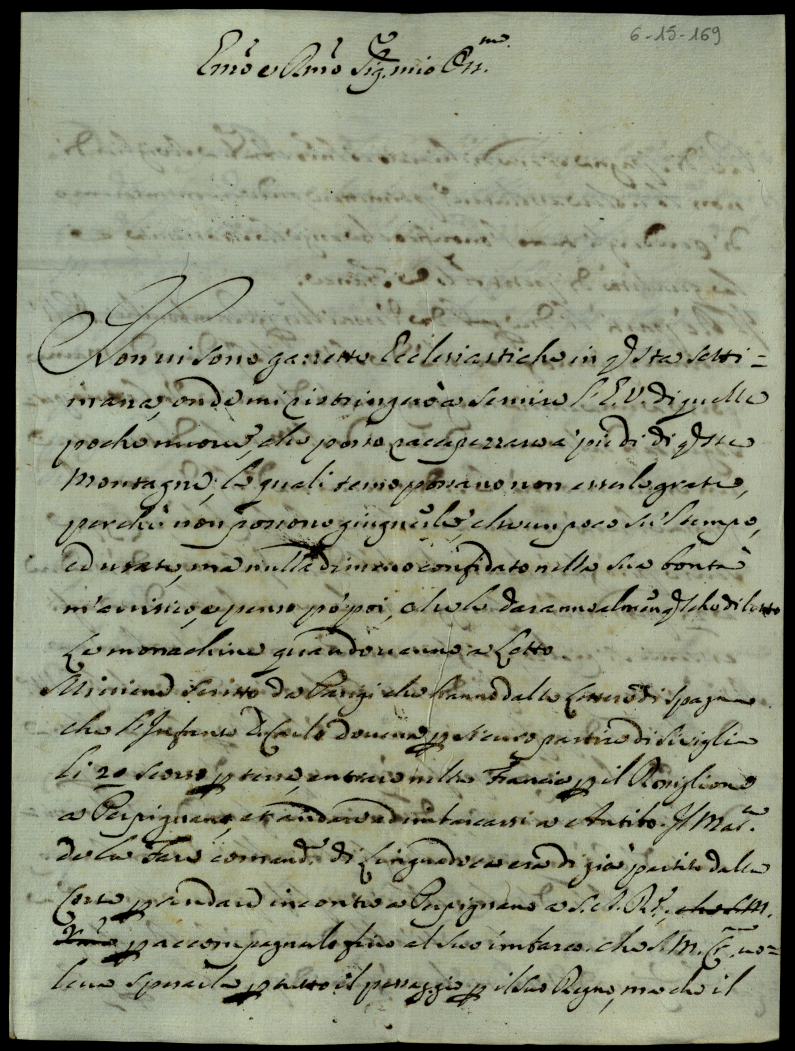 6-15-169
Em.o e Rmo Sig. mio Oss.mo
Non vi sono gazzette Ecclesiastiche in qsta setti=
mana, onde mi ristringerò a servire l'E.V. di quelle
poche nuove, che posso raccapezzare a' piedi di qste
Montagne, le quali temo possano non esserle grate,
perchè non possono giugnerle, che un poco di tempo,
ed usate, ma nulla di meno confidato nella sua bontà
m'avvisico, e penso pò poi, che le daranno almen qlche diletto
Le monachine quando vanno a Letto.
Mi viene scritto da Parigi che hanno dalle Lettere di Spagna
che l'Infante D. Carlo doveva p sicuro partire di Siviglia
li 20 scorso p terra, entrare nella Francia p il Rossiglione
a Perpignano, et andare ad imbarcarsi a Antibo. Il Mar.
de la Fare comand.e di Linguadoca era di già partito dalla
Corte p andare incontro a Perpignano a S.A.R., che S.M.
p accompagnarlo fino al suo imbarco. che S.M. C. vo=
leva spesarla p tutto il passaggio p il suo Regno, ma che il